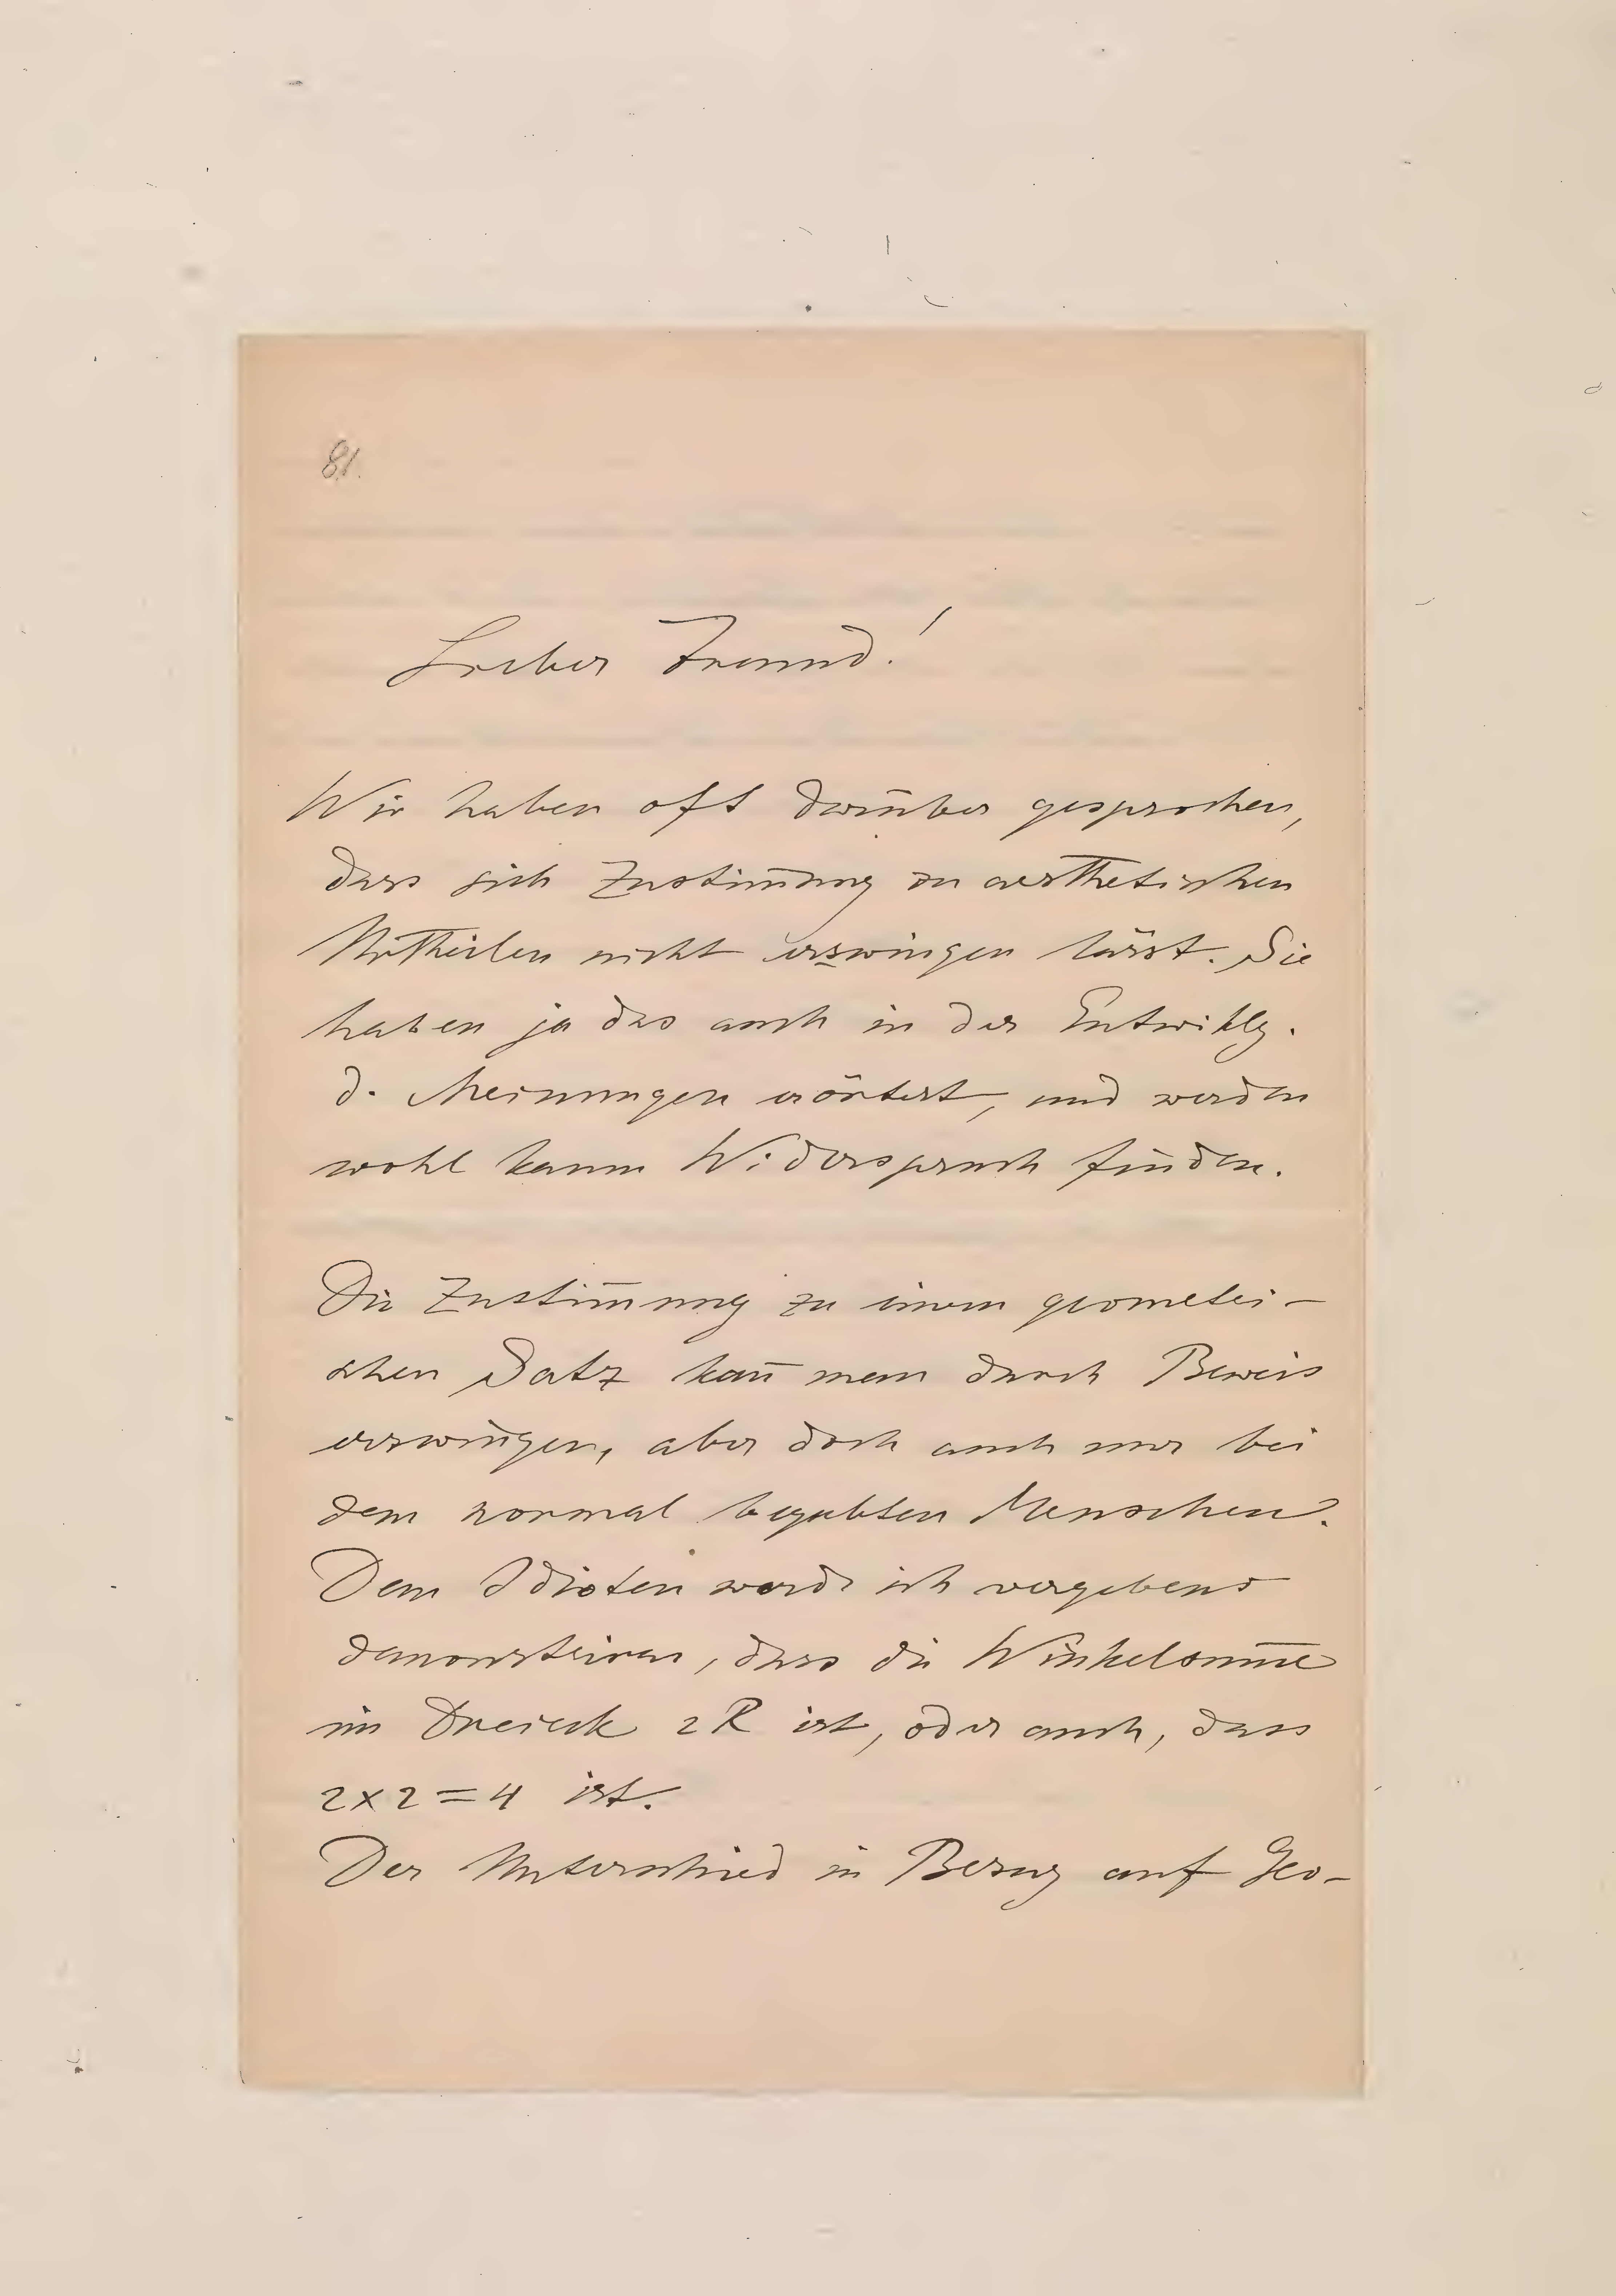 81.
Lieber Freund!
Wir haben oft darüber gesprochen,
dass sich Zustim̄ung zu aesthetischen
Urtheilen nicht erzwingen lässt. Sie
haben ja das auch in der Entwiklg.
d. Meinungen erörtert, und werden
wohl kaum Widerspruch finden.
Die Zustim̄ung zu einem geometri-
schen Satz kan̄ man durch Beweis
erzwingen, aber doch auch nur bei
dem normal begabten Menschen.
Dem Idioten werde ich vergebens
demonstriren, dass die Winkelsum̄e
im Dreieck 2R ist, oder auch, dass
2x2=4 ist.
Der Unterschied in Bezug auf Geo-